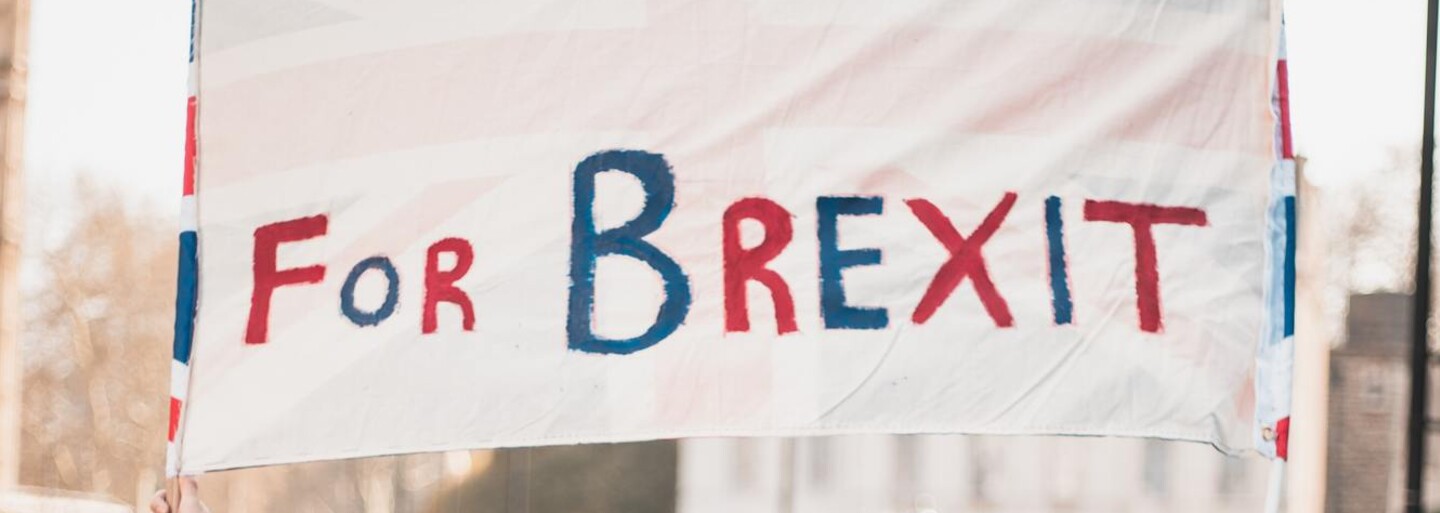 FOR BREXIT